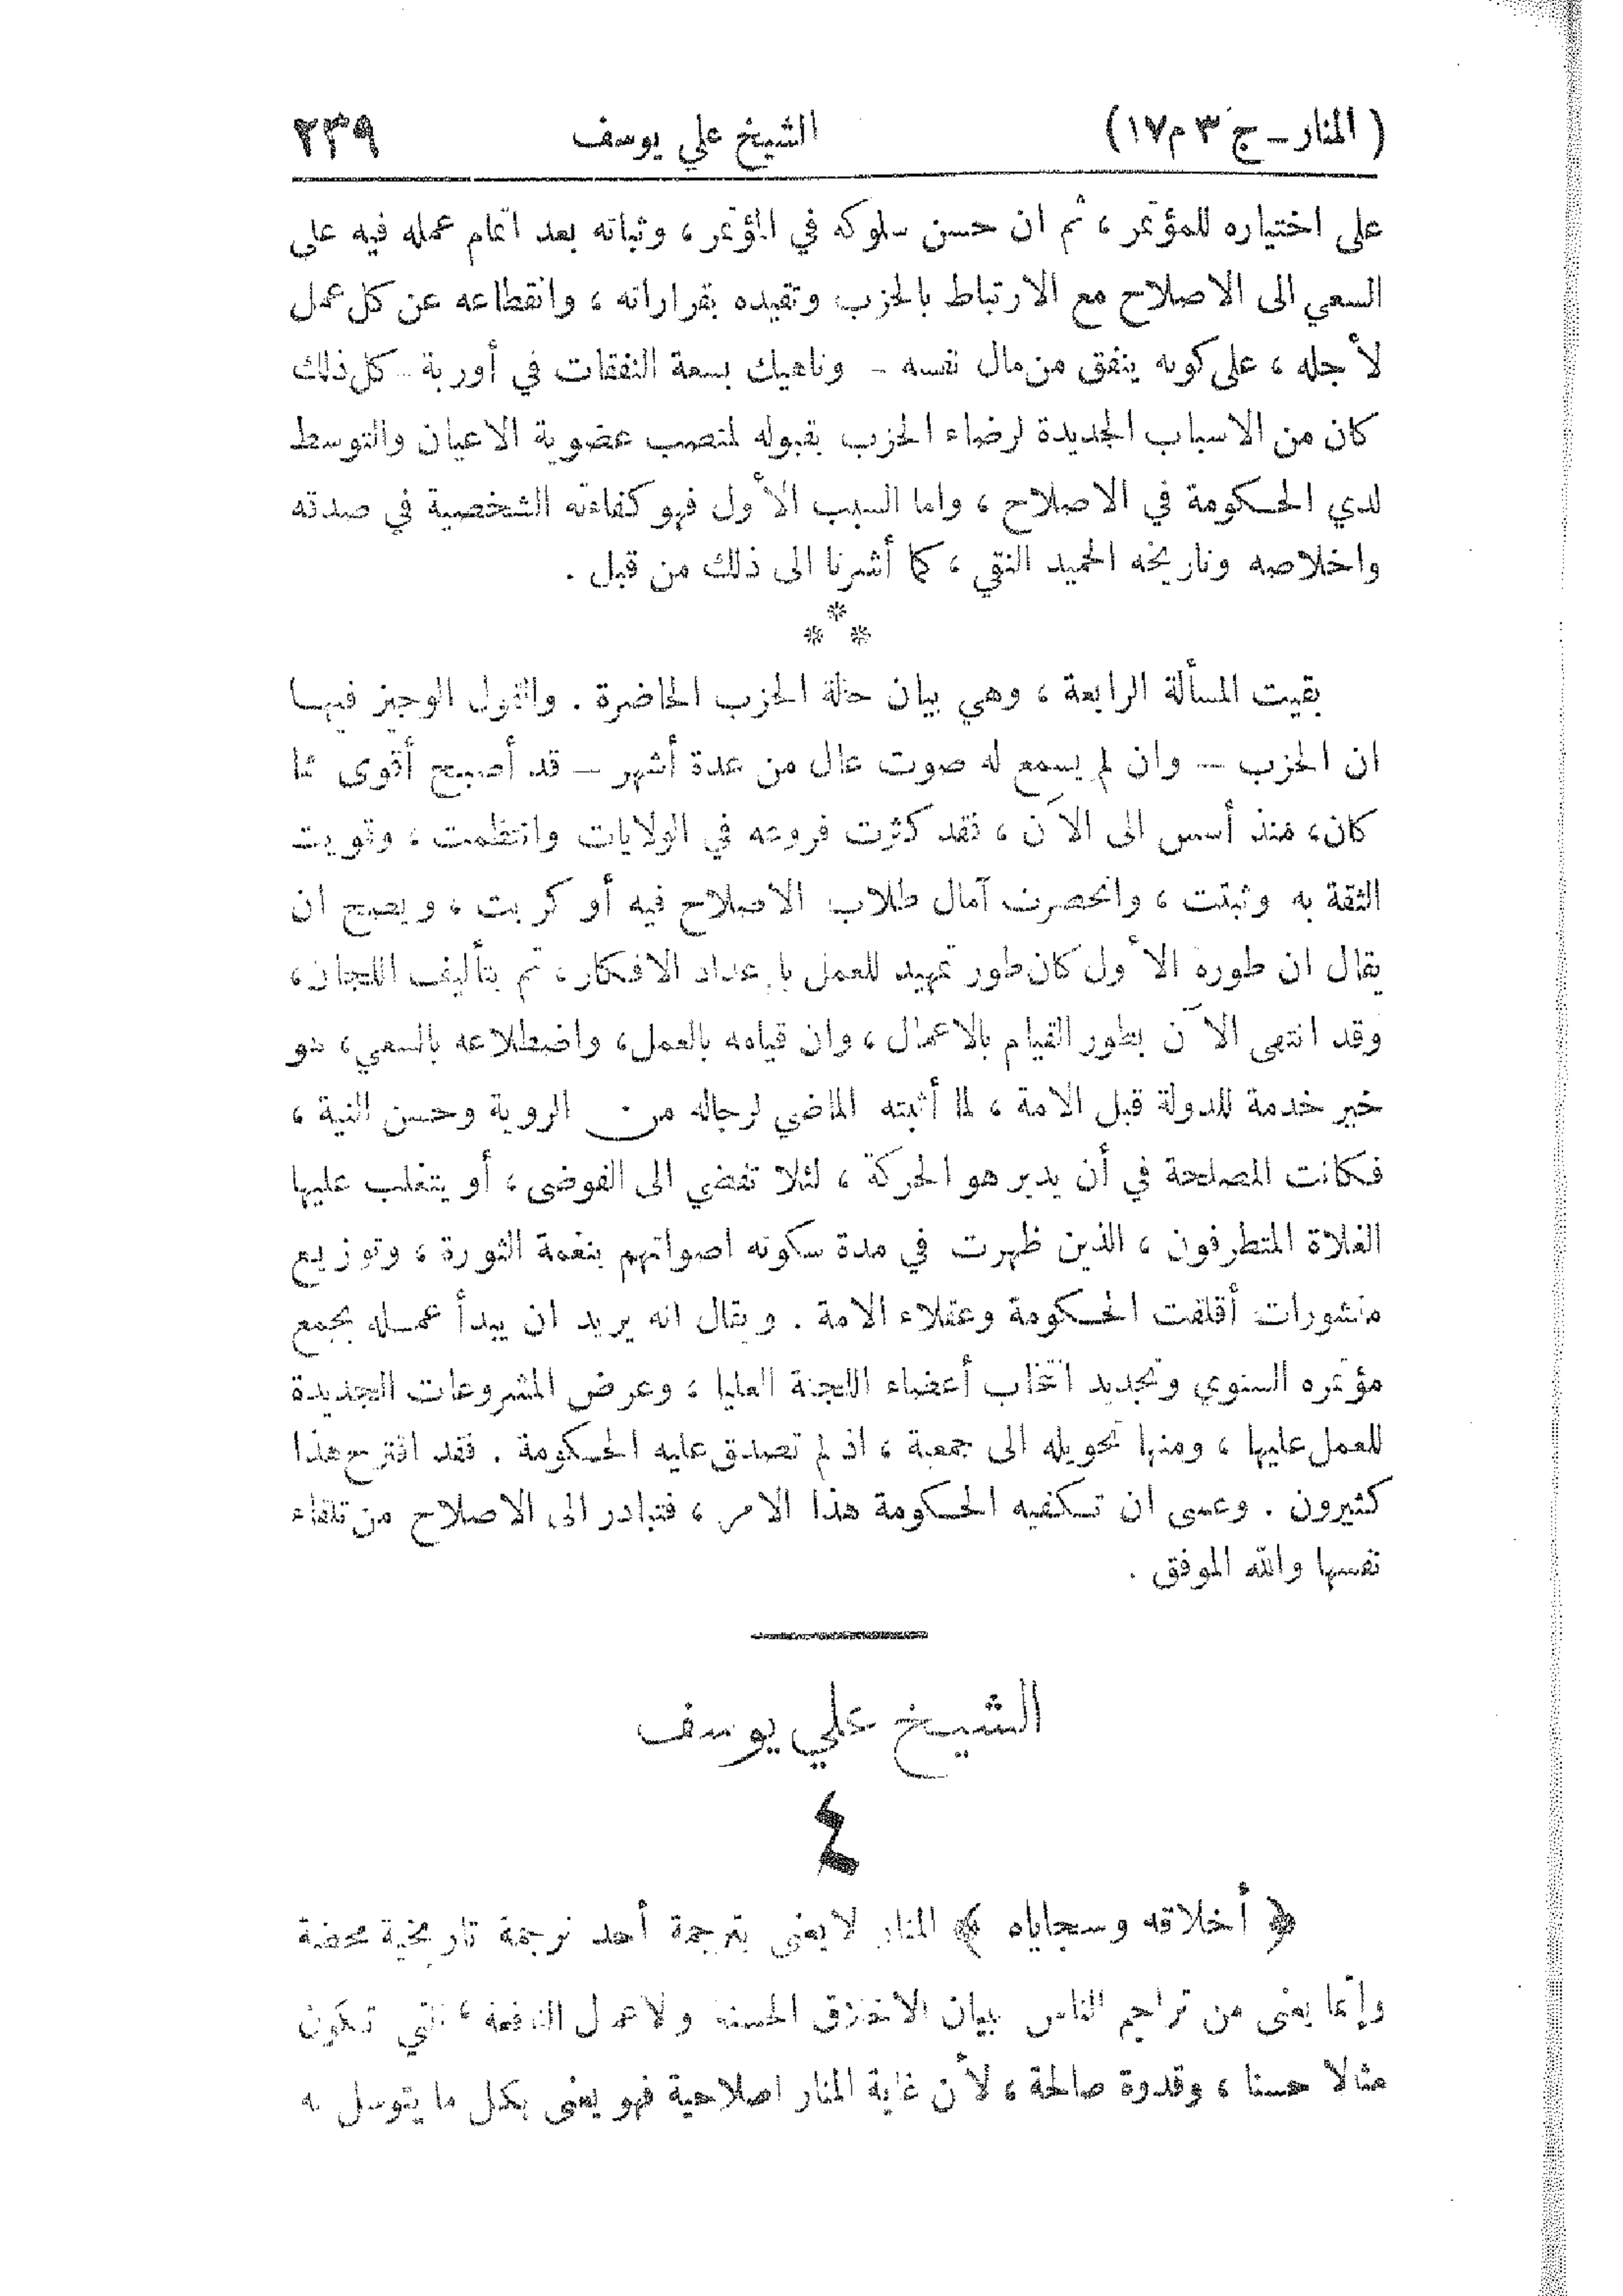 ( المنار ــ ج ٣ م ١٧ ) الشيخ علي يوسف ٢٣٩
على اختياره للمؤتمر ، ثم ان حسن سلوكه في المؤتمر ، وثباته بعد اتمام عمله فيه على
السعي الى الاصلاح مع الارتباط بالحزب وتقيده بقراراته ، وانقطاعه عن كل عمل
لأجله ، على كونه ينفق من مال نفسه ــ وناهيك بسعة النفقات في أوربة ــ كل ذلك
كان من الاسباب الجديدة لرضاء الحزب بقبوله لمنصب عضوية الاعيان والتوسط
لدي الحكومة في الاصلاح ، واما السبب الأول فهو كفاءته الشخصية في صدقه
واخلاصه وتاريخه الحميد النقي ، كما أشرنا الى ذلك من قبل .
* * *
بقيت المسألة الرابعة ، وهي بيان حالة الحزب الحاضرة . والقول الوجيز فيها
ان الحزب ــ وان لم يسمع له صوت عال من عدة أشهر ــ قد أصبح أقوى مما
كان، منذ أسس الى الآن ، فقد كثرت فروعه في الولايات وانتظمت ، وقويت
الثقة به وثبتت ، وانحصرت آمال طلاب الاصلاح فيه أو كربت ، ويصح ان
يقال ان طوره الأول كان طور تمهيد للعمل بإعداد الافكار، ثم بتأليف اللجان،
وقد انتهى الآن بطور القيام بالاعمال ، وان قيامه بالعمل، واضطلاعه بالسعي، هو
خير خدمة للدولة قبل الامة ، لما أثبته الماضي لرجاله من الروية وحسن النية ،
فكانت المصلحة في أن يدير هو الحركة ، لئلا تفضي الى الفوضى ، أو يتغلب عليها
الغلاة المتطرفون ، الذين ظهرت في مدة سكونه اصواتهم بنغمة الثورة ، وتوزيع
منشورات أقلقت الحكومة وعقلاء الامة . ويقال انه يريد ان يبدأ عمله بجمع
مؤتمره السنوي وتجديد انتخاب أعضاء اللجنة العليا ، وعرض المشروعات الجديدة
للعمل عليها ، ومنها تحويله الى جمعية ، اذ لم تصدق عليه الحكومة . فقد اقترح هذا
كثيرون . وعسى ان تكفيه الحكومة هذا الامر ، فتبادر الى الاصلاح من تلقاء
نفسها والله الموفق .
الشيخ علي يوسف
٤
﴿ أخلاقه وسجاياه ﴾ المنار لا يعنى بترجمة أحد ترجمة تاريخية محضة
وإنما يعنى من تراجم الناس ببيان الاخلاق الحسنة والاعمال النافعة ، التي تكون
مثالا حسنا ، وقدوة صالحة ، لأن غاية المنار اصلاحية فهو يعنى بكل ما يتوسل به